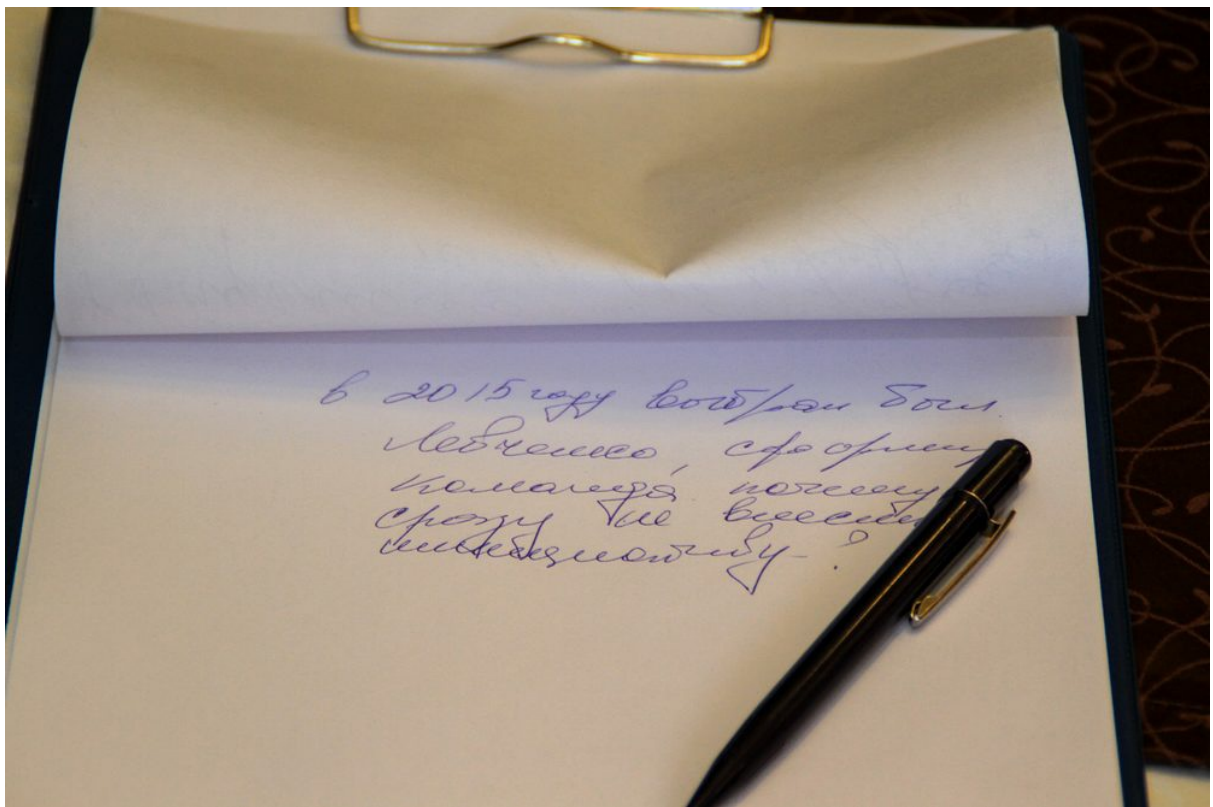 в 2015 году выбран был
Левченко, сформи
команда, почему
сразу не внесли
инициативу?